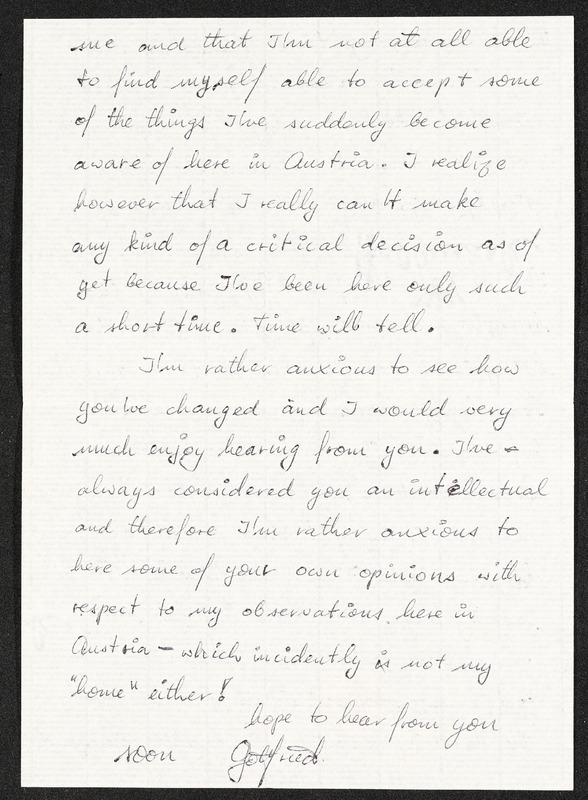 me and that I'm not at all able
to find myself able to accept some
of the things I've suddenly become
aware of here in Austria. I realize
however that I really can't make
any kind of a critical decision as of
yet because I've been here only such
a short time. Time will tell.
I'm rather anxious to see how
you've changed and I would very
much enjoy hearing from you. I've
always considered you an intellectual
and therefore I'm rather anxious to
here some of your own opinions with
respect to my observations here in
Austria - which incidently is not my
"home" either!
hope to hear from you
soon Gottfried.